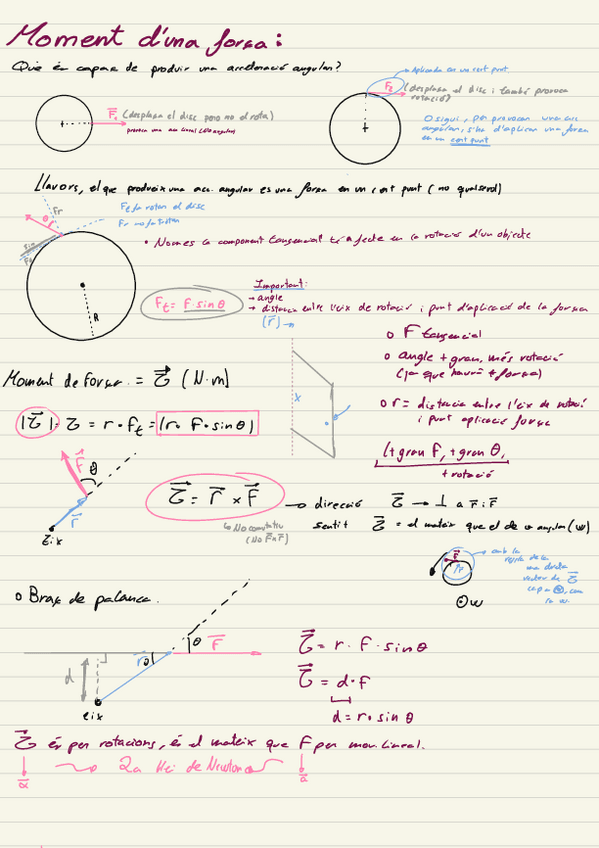 Moment d'una força:
Què és capaç de produir una acceleració angular?
Aplicada en un cert punt.
F₁ (desplaça el disc pero no el rota)
provoca una acc lineal (No angular)
F₂ (desplaça el disc i també provoca rotació)
O sigui, per provocar una acc
angular, s'ha d'aplicar una força
en un cert punt
Llavors, el que produeix una acc. angular es una força en un cert punt (no qualsevol)
Fr
θ
Ft fa rotar el disc
Fr no fa rotar
• Només la component tangencial té afecte en la rotació d'un objecte
R
Ft = F·sin θ
Important:
→ angle
→ distancia entre l'eix de rotació i punt d'aplicació de la força
(r⃗)
x
o F tangencial
o angle + gran, més rotació
(ja que haurà + força)
o r = distancia entre l'eix de rotació
i punt aplicacio força
(+gran F, +gran θ,
+ rotació
Moment de força = τ⃗ (N·m)
|τ⃗| = τ = r·Ft = (r· F·sin θ)
F⃗
θ
r⃗
Eix
τ⃗ = r⃗ × F⃗
↳ No conmutatiu
(No F⃗×r⃗)
→ direcció τ⃗ → ⊥ a r⃗ i F⃗
sentit τ⃗ = el mateix que el de α angular (w)
F⃗
r⃗
amb la
regla de la
ma dreta
vector de τ⃗
⊙ w
o Braç de palanca.
θ
F⃗
r⃗
θ
d
eix
τ⃗ = r · F · sin θ
τ⃗ = d·F
d = r·sin θ
τ⃗ és per rotacions, és el mateix que F per mov. lineal.
α⃗
2a Llei de Newton
a⃗